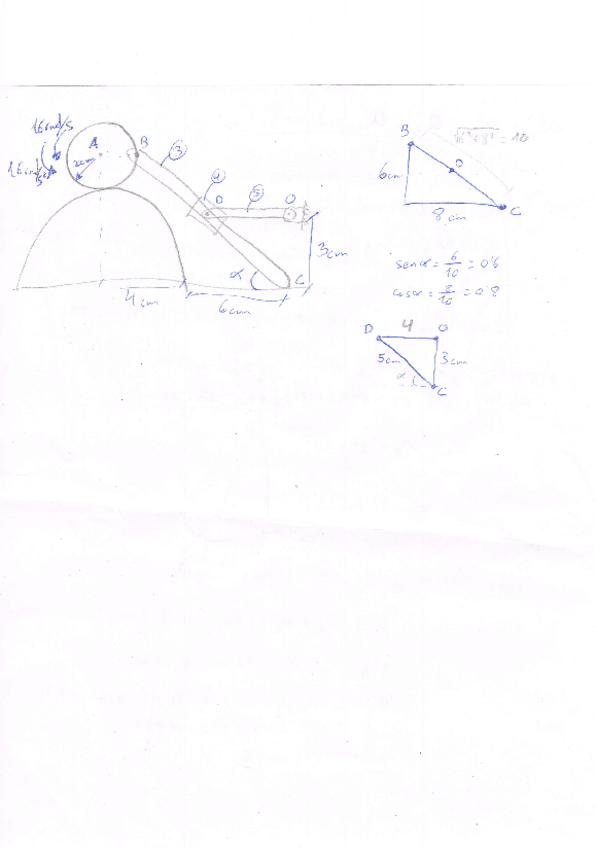 1 rad/s
A
B
3
2cm
4
D
5
O
3cm
α
C
4cm
6cm
B
√6²+8² = 10
D
6cm
C
8cm
senα = 6/10 = 0'6
cosα = 8/10 = 0'8
D 4 O
5cm
3cm
α
C